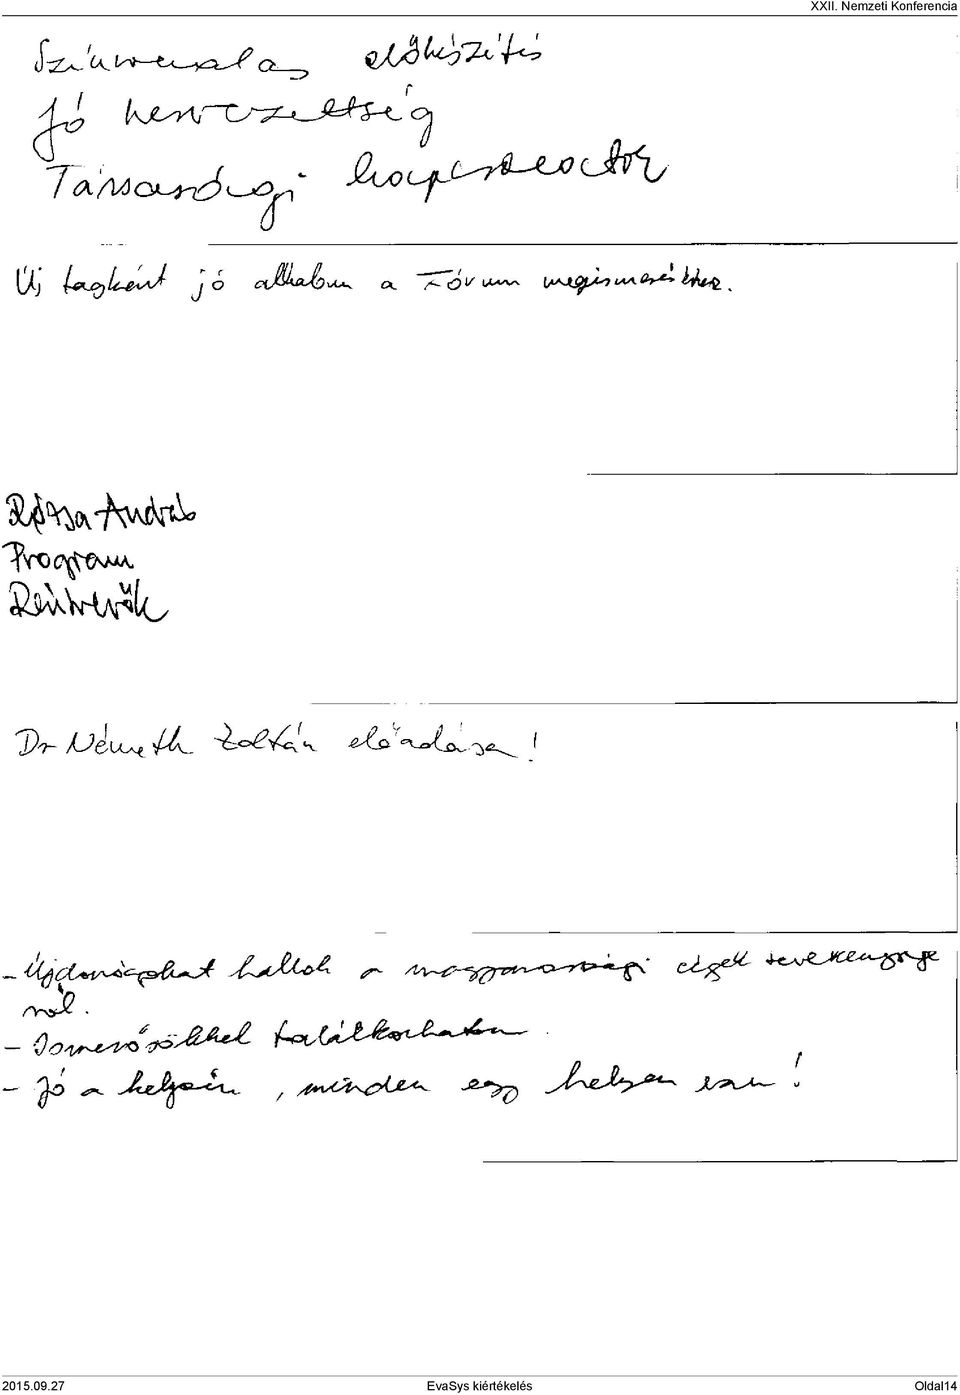 XXII. Nemzeti Konferencia
Színvonalas előkészítés
Jó szervezettség
Társasági kapcsolatok
Új tagként jó alkalom a Fórum megismeréséhez.
Rózsa András
Program
Résztvevők
Dr Németh Zoltán előadása!
- Újdonságokat hallok a magyarországi cégek tevékenysége
ről.
- Ismerősökkel találkozhatom.
- Jó a helyszín, minden egy helyen van!
2015.09.27
EvaSys kiértékelés
Oldal14